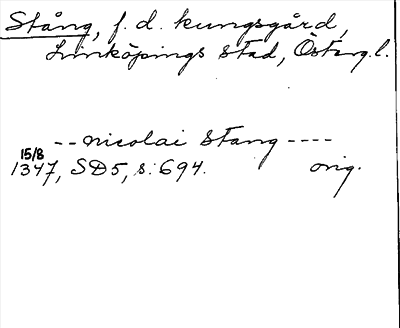 Stång, f. d. kungsgård,
Linköpings stad, Östergl.
-- nicolai Stang ----
15/8
1347, SD5, s. 694. orig.